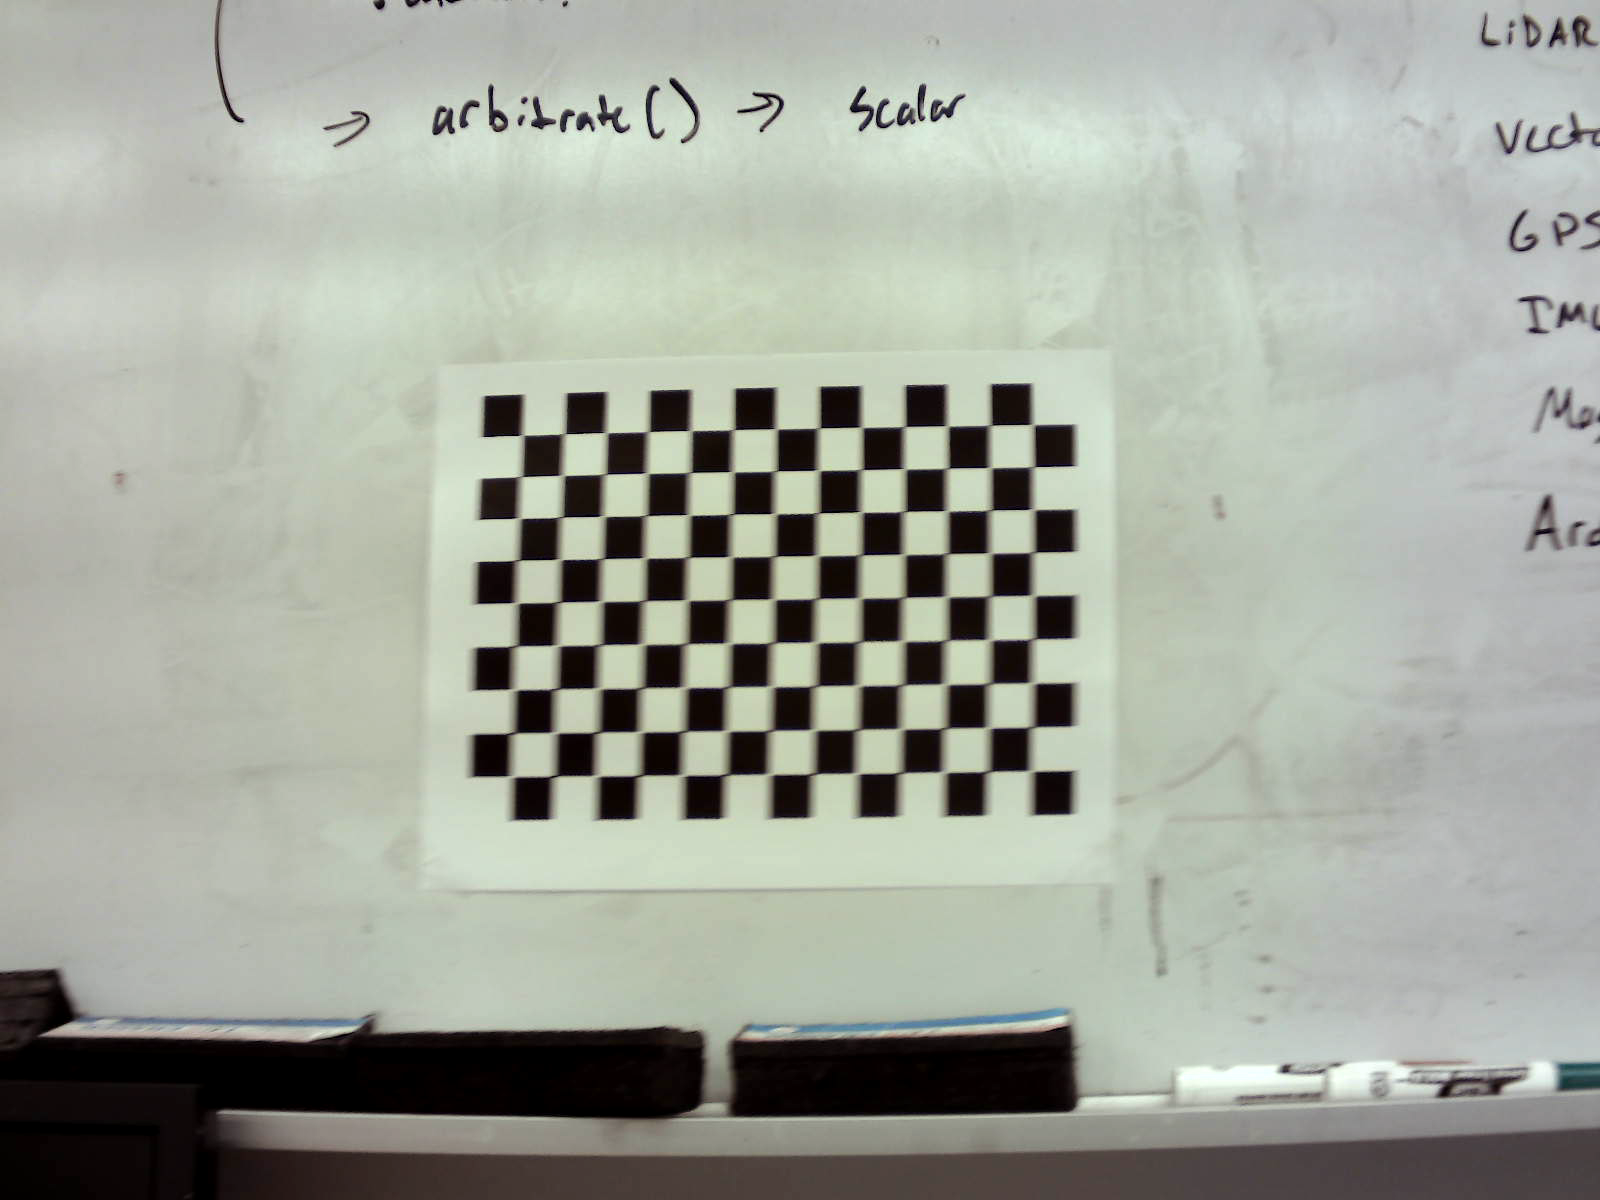 → arbitrate() → scalar
LiDAR
Vecto
GPS
IMU
Mag
Ard